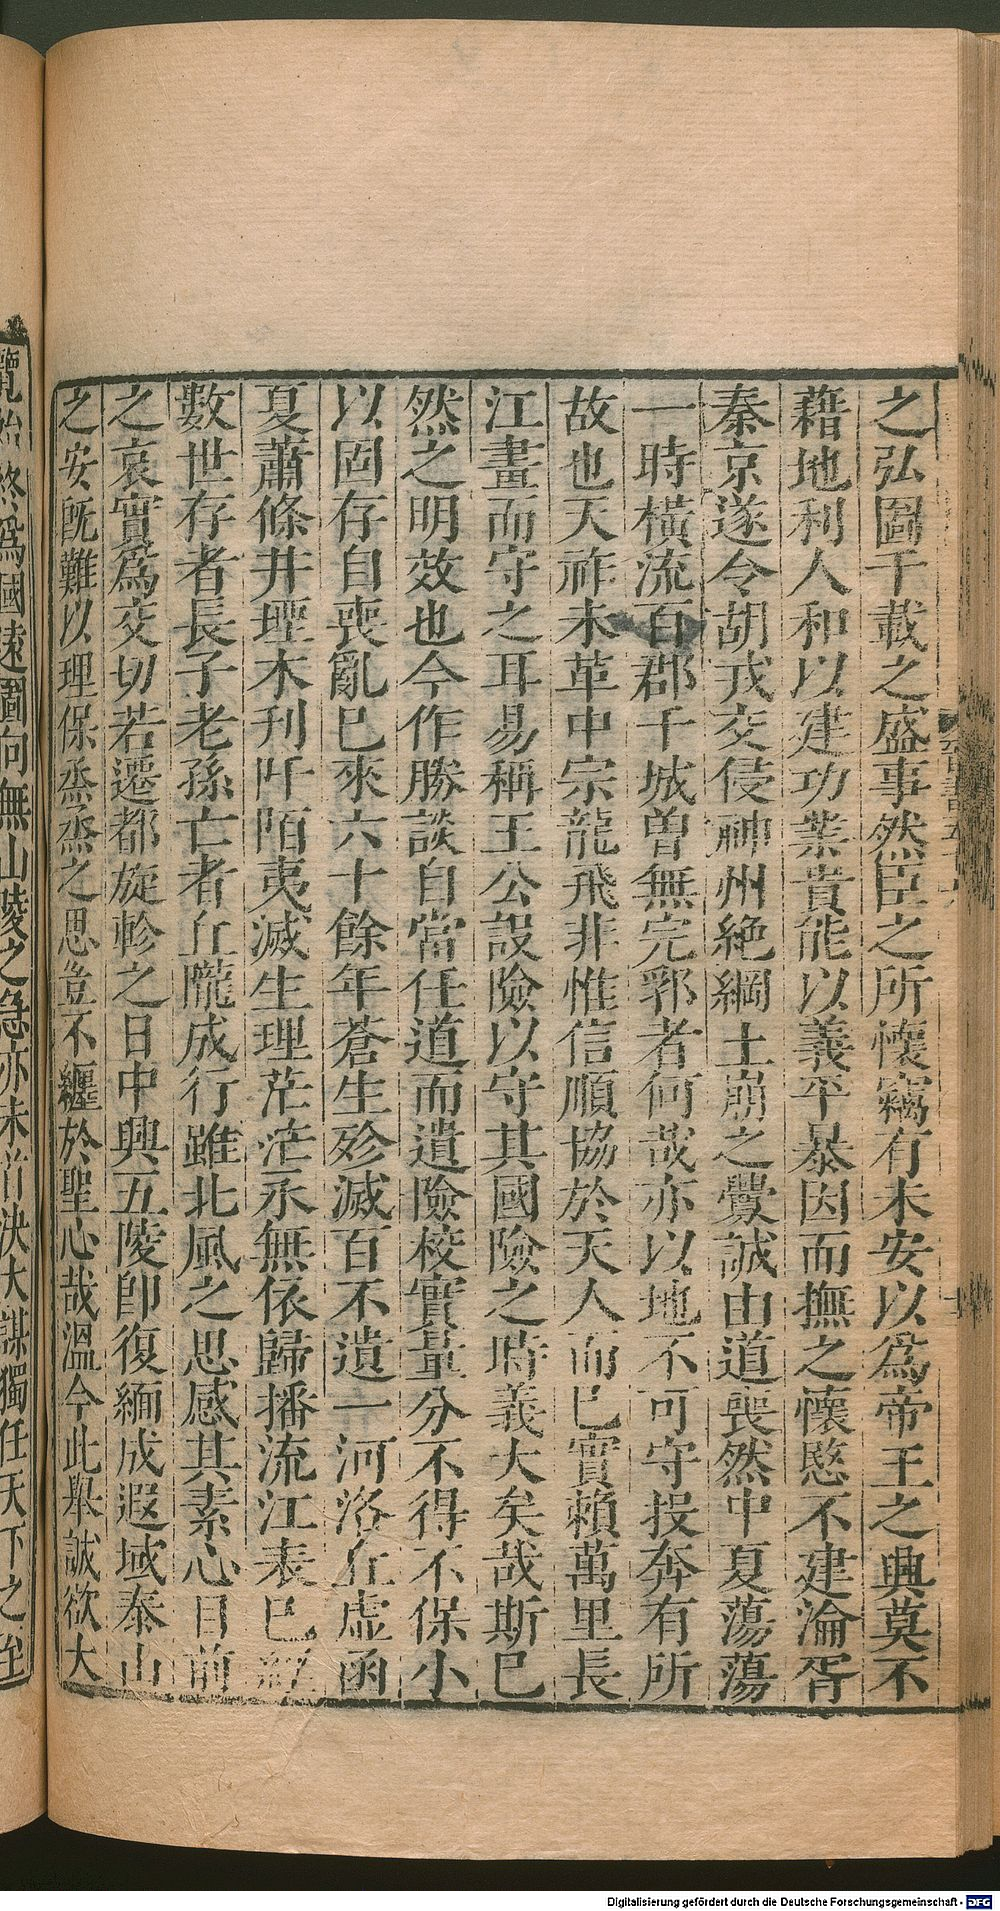 之弘圖千載之盛事然臣之所懷竊有未安以爲帝王之興莫不
藉地利人和以建功業貴能以義平暴因而撫之懷愍不建淪胥
秦京遂令胡戎交侵神州絶綱土崩之釁誠由道喪然中夏蕩蕩
一時橫流百郡千城曽無完郛者何哉亦以地不可守投奔有所
故也天祚未革中宗龍飛非惟信順協於天人而已實賴萬里長
江畫而守之耳易稱王公設險以守其國險之時義大矣哉斯已
然之明效也今作勝談自當任道而遺險校實量分不得不保小
以固存自喪亂已來六十餘年蒼生殄滅百不遺一河洛丘虛函
夏蕭條井堙木刊阡陌夷滅生理茫茫永無依歸播流江表已經
數世存者長子老孫亡者丘隴成行雖北風之思感其素心目前
之哀實爲交切若遷都旋軫之日中興五陵卽復緬成遐域泰山
之安旣難以理保烝烝之思豈不纒於聖心哉溫今此舉誠欲大
覽始終爲國遠圖向無山陵之急亦未首決大謀獨任天下之至
Digitalisierung gefördert durch die Deutsche Forschungsgemeinschaft - DFG